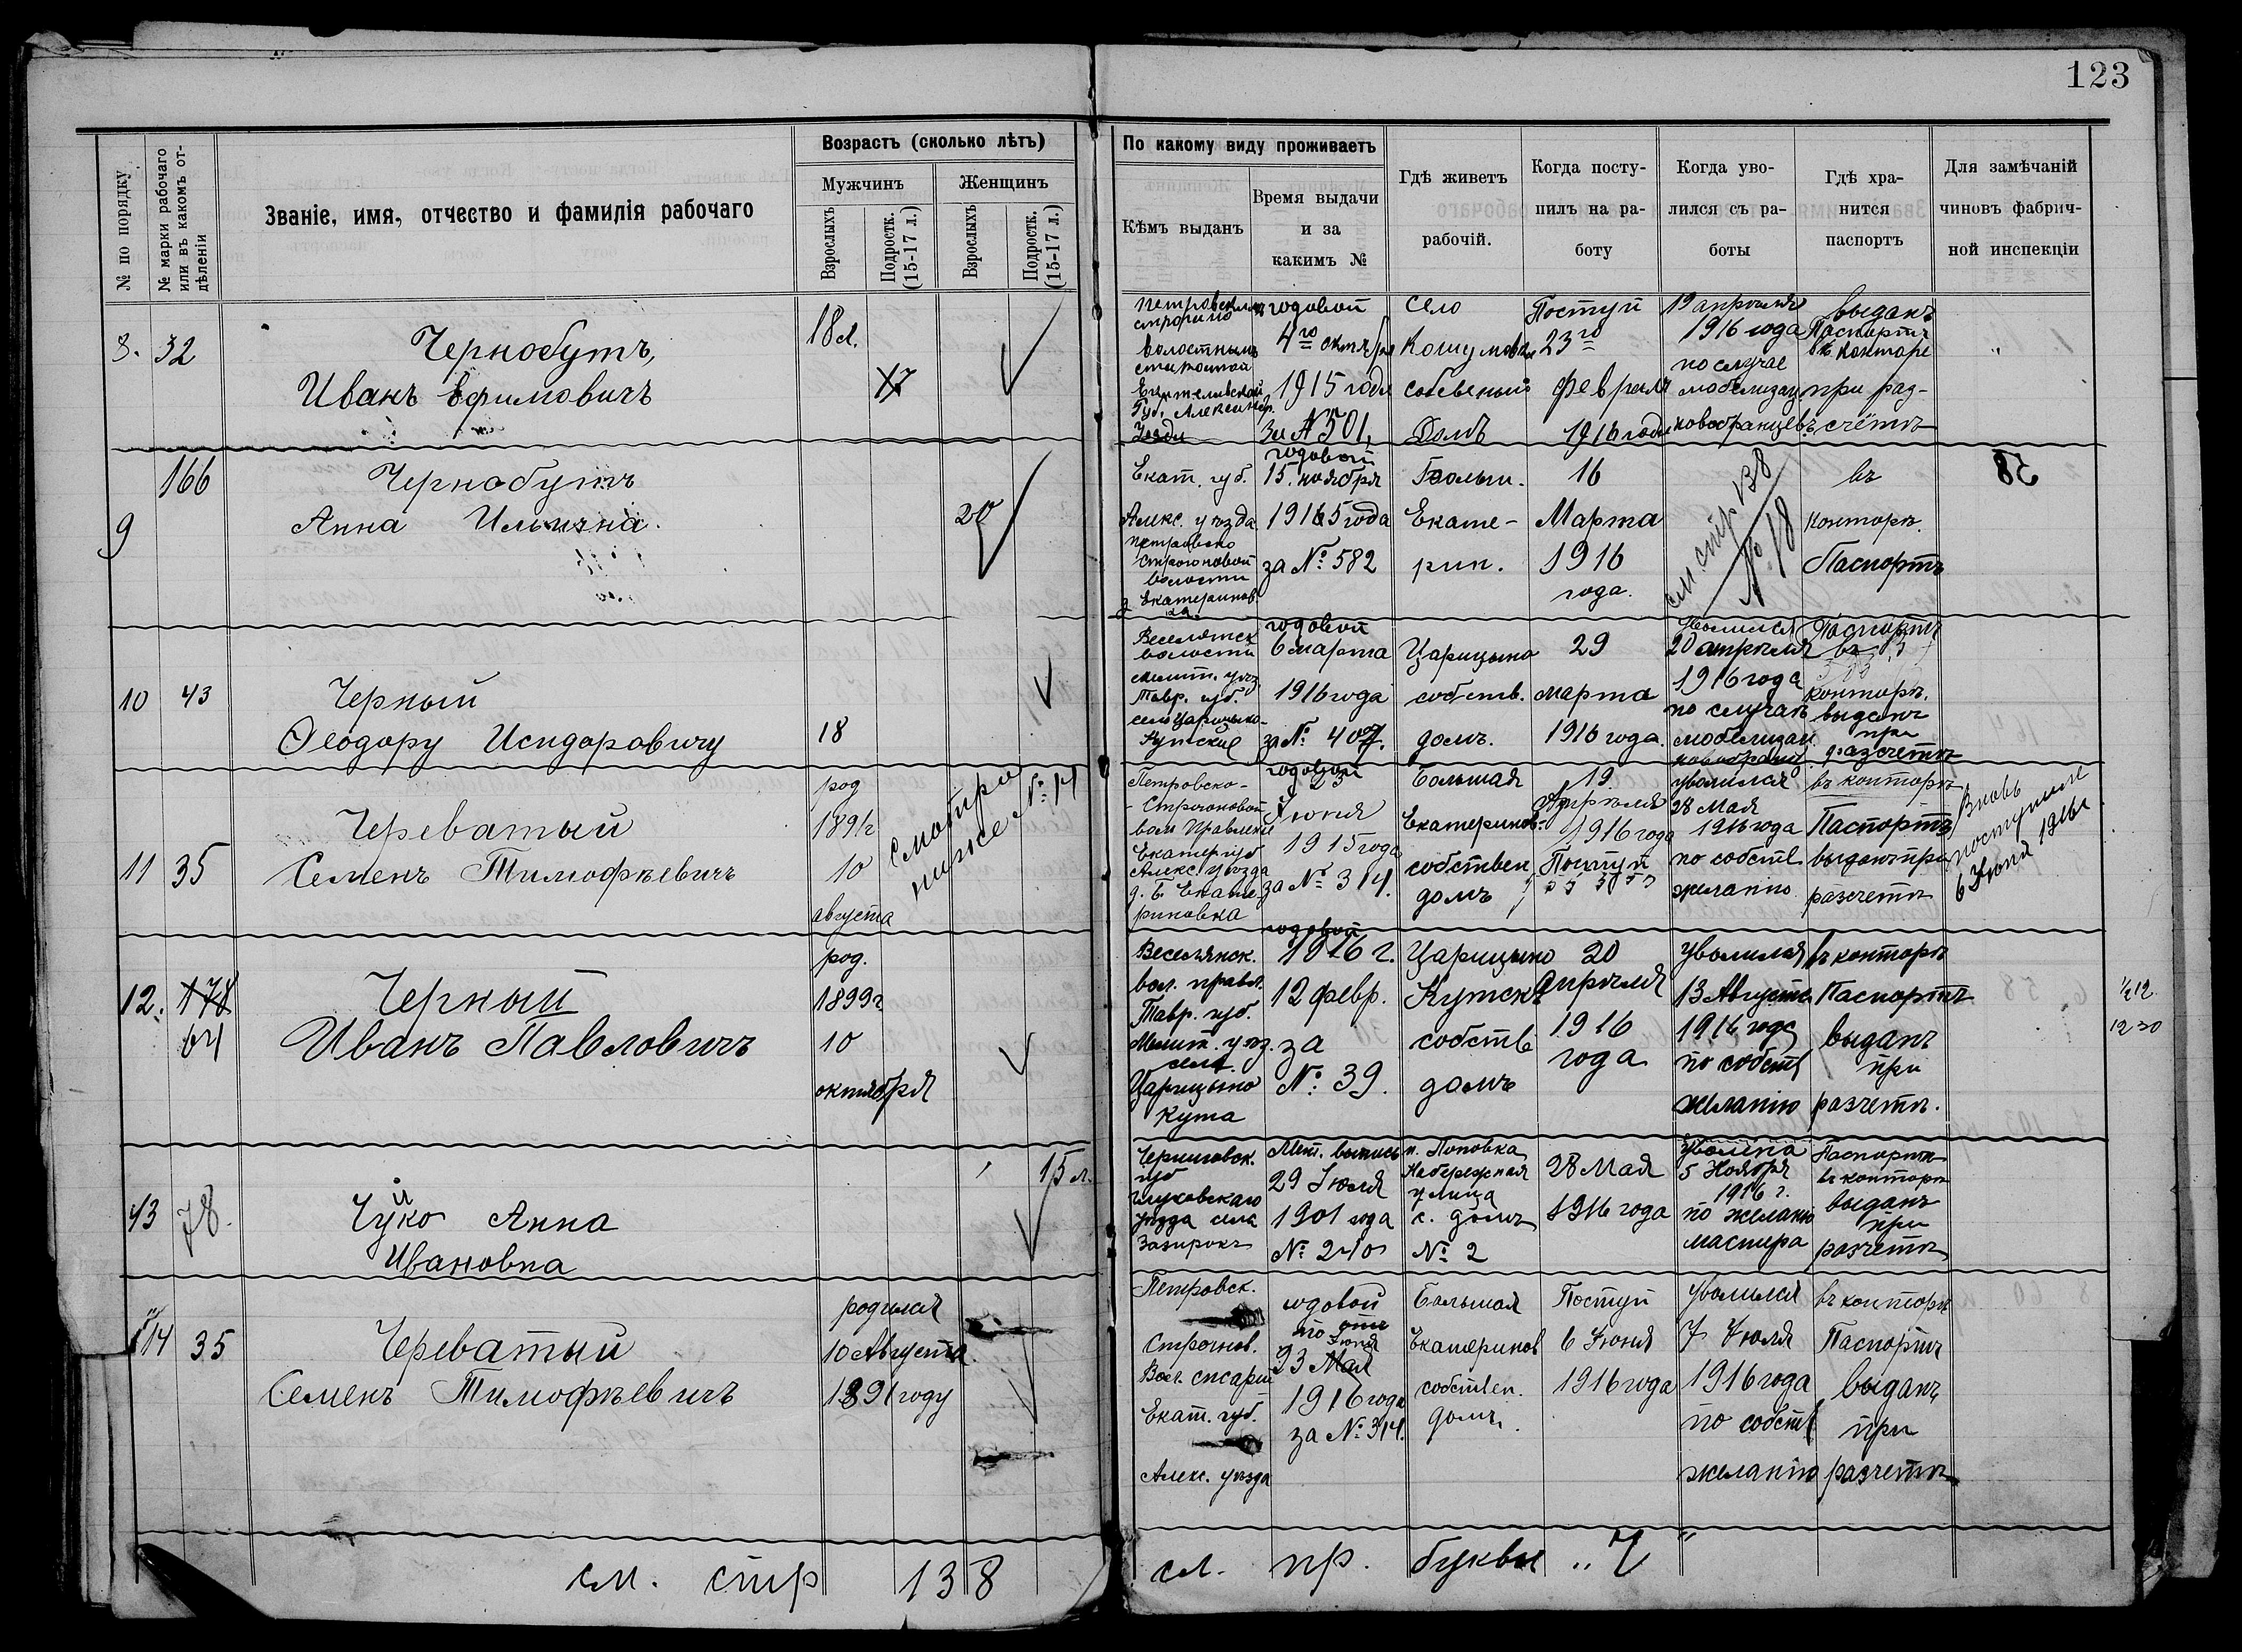 123
№ по порядку
№ марки рабочаго или въ какомъ отдѣленіи
Званіе, имя, отчество и фамилія рабочаго
Возрастъ (сколько лѣтъ)
Мужчинъ
Женщинъ
Взрослыхъ
Подростк. (15-17 л.)
Взрослыхъ
Подростк. (15-17 л.)
По какому виду проживаетъ
Кѣмъ выданъ
Время выдачи
и за
какимъ №
Гдѣ живетъ
рабочій.
Когда посту-
пилъ на ра-
боту
Когда уво-
лился съ ра-
боты
Гдѣ хра-
нится
паспортъ
Для замѣчаній
чиновъ фабрич-
ной инспекціи
8. 32
Чернобутъ,
Иванъ Ефимовичъ
18 л.
17
волостнымъ
Губ. Александр.
Уѣзда
годовой
4го октября
1915 года
За № 501,
село
собственый
Домъ
Поступ
23го
февраля
1916 года
19 апрѣля
1916 года
по случае
мобилизац
новобранцевъ
выданъ
Паспортъ
въ конторе
при раз-
счётѣ
9
166
Чернобутъ
Анна Ильична.
20
Екат. губ.
Алекс. уѣзда
Петровско
Строгоновой
волости
д Екатеринов
ка
годовой
15. ноября
1915 года
за № 582
Больш.
Екате-
рин.
16
Марта
1916
года.
см. стр 138
№ 18
въ
конторѣ.
Паспортъ
38
10 43
Черный
Ѳеодору Исидоровичу
18
Веселянск
волости
мелит. уѣз.
Тавр. губ.
село Царицыно-
Кутские
годовой
6 марта
1916 года
за № 407.
Царицыно
собств.
домъ.
29
марта
1916 года.
Уволился
20 апрѣля
1916 года
по случаѣ
мобилизац.
новобранц.
Паспортъ
въ
конторѣ.
выданъ
при
разсчетѣ
11 35
Череватый
Семенъ Тимофѣевичъ
род
1891г
10
августа
смотри
ниже № 14
Петровско-
Строгоновой
вол Правление
Екатер губ
Алекс. уѣзда
д. Б. Екате-
риновка
годовой
23
Июня
1915 года
за № 314.
Большая
Екатеринов-
собствен
домъ
19
Апрѣля
1916 года
Поступ
уволился
28 Мая
1916 года
по собств
желанію
въ конторѣ
Паспортъ
выданъ при
разсчетѣ
Вновь
поступилъ
6 Июня 1916г
12. 178
64
Черный
Иванъ Павловичъ
род.
1899г
10
октября
Веселянск.
вол. правл.
Тавр. губ.
Мелит. уѣз.
села
Царицыно
Кута
годовой
1916 г.
12 февр.
за
№ 39.
Царицыно
Кутскъ
собств
домъ
20
Апрѣля
1916
года
уволился
13 Августа
1916 года
по собств
желанію
въ конторѣ
Паспортъ
выданъ
при
разчетѣ.
1/2 12.
12 30
13 78.
Чуйко Анна
Ивановна
15 л.
Черниговск.
губ
глуховскаго
уѣзда села
Зазирокъ
Мет. выпись
29 Июля
1901 года
№ 240
п. Поповка
Набережная
улица
с. домъ
№ 2
28 Мая
1916 года
Уволена
5 Ноября
1916 г.
по желанію
мастера
Паспортъ
въ конторѣ
выданъ
при
разчетѣ
14 35
Череватый
Семенъ Тимофѣевичъ
родился
10 Августа
1891 году
Петровск.
Строгнов.
Екат. губ.
Алекс. уѣзда
годовой
по отъ
Июня
23 Мая
1916 года
за № 314.
Большая
Екатеринов
собствен.
домъ.
Поступ
6 Июня
1916 года
Уволился
7 Июля
1916 года
по собств
желанію
въ конторѣ
Паспортъ
выданъ
при
разчетѣ
см. стр 138
сл. пр. буквы „Ч"